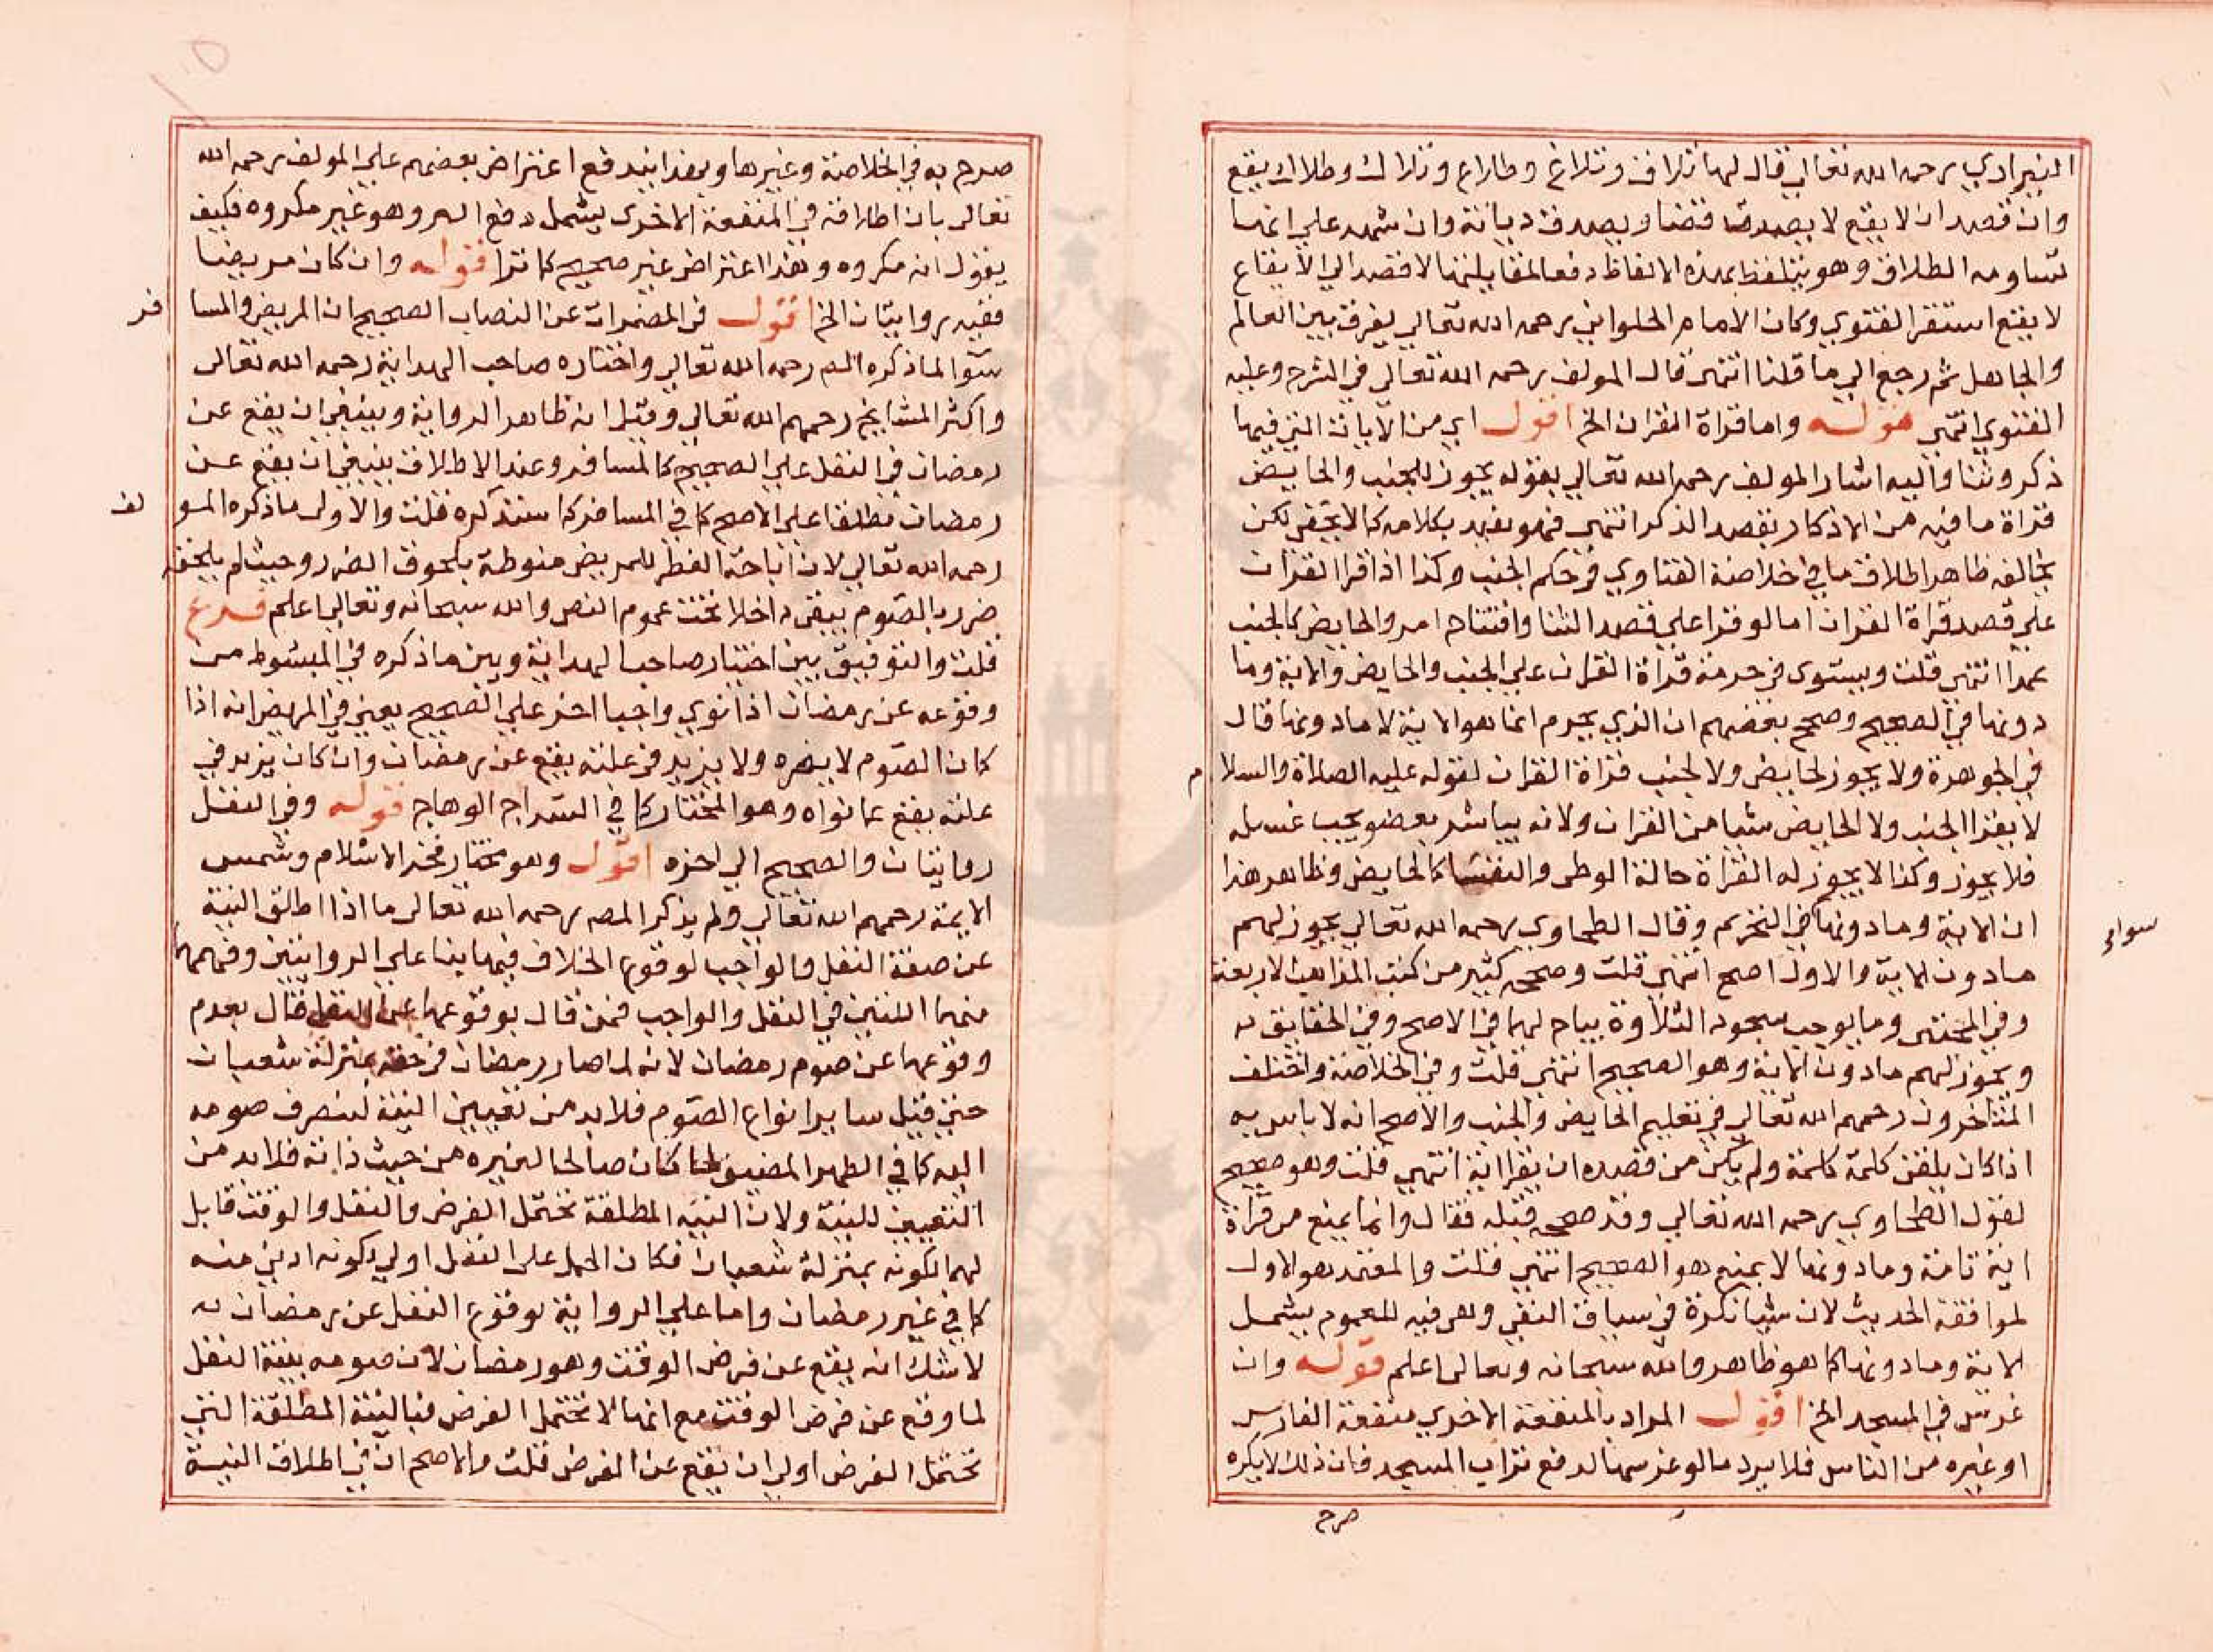 البزادي رحمه الله تعالى قال لها تلاق وتلاغ وطلاع وتلاك وطلاك يقع
وان قصد ان لا يقع لا يصدق قضا ويصدق ديانة وان شهد على انها
تساومه الطلاق وهو يتلفظ بهذه الالفاظ دفعا لمقابلتها لا قصدا الى الايقاع
لا يقع استقر الفتوي وكان الامام الحلواني رحمه الله تعالي يفرق بين العالم
والجاهل ثم رجع الي ما قلنا انتهى قال المولف رحمه الله تعالي في الشرح وعليه
الفتوي انتهى قوله واما قراة القران الخ اقول اي من الايات التي فيها
ذكر وثنا واليه اشار المولف رحمه الله تعالي بقوله يجوز للجنب والحايض
قراة ما فيه من الاذكار بقصد الذكر انتهى فهو مفهوم بكلامه كما لا يخفى لكن
يخالفه ظاهر اطلاق ما في خلاصة الفتاوي في حكم الجنب وكذا اذا قرا القران
على قصد قراة القران اما لو قرا على قصد الثنا وافتتاح امر والحايض كالجنب
عمدا انتهى قلت ويستوى في حرمة قراة القران على الجنب والحايض والاية وما
دونها في الصحيح وصحح بعضهم ان الذي يحرم انما هو الاية لا ما دونها قال
في الجوهرة ولا يجوز لحايض ولا لجنب قراة القران لقوله عليه الصلاة والسلا م
لا يقرا الجنب ولا الحايض شيا من القران ولانه يباشر بعضو يجب غسله
فلا يجوز وكذا لا يجوز له القراة حالة الوطى والنفسا كالحايض وظاهر هذا
ان الاية وما دونها في التحريم وقال الطحاوي رحمه الله تعالي يجوز لهم
سواء
ما دون الاية والاول اصح انتهى قلت وصححه كثير من كتب المذاهب الاربعة
وفي المجتبى وما يوجب سجود التلاوة يباح لهما في الاصح وفي الحقايق
ويجوز لهم ما دون الاية وهو الصحيح انتهى قلت وفي الخلاصة واختلف
المتاخرون رحمهم الله تعالى في تعليم الحايض والجنب والاصح انه لا باس به
اذا كان يلقن كلمة كلمة ولم يكن من قصده ان يقرا اية انتهي قلت وهو صحيح
لقول الطحاوي رحمه الله تعالي وقد صححه قبله فقال وانما يمنع من قراة
اية تامة وما دونها لا يمنع هو الصحيح انتهى قلت والمعتمد هو الاول
لموافقة الحديث لان شيا نكرة في سياق النفي وهي فيه للعموم يشمل
الاية وما دونها كما هو ظاهر والله سبحانه وتعالى اعلم قوله وان
غرس في المسجد الخ اقول المراد بالمنفعة الاخري منفعة الغارس
او غيره من الناس فلا يرد ما لو غرسها لدفع نزاب المسجد فان ذلك لا يكره
صرح
صرح به في الخلاصة وغيرها وبهذا يندفع اعتراض بعضهم علي المولف رحمه الله
تعالى بان اطلاقه في المنفعة الاخرى يشمل دفع النز وهو غير مكروه فكيف
يقول انه مكروه وهذا اعتراض غير صحيح كما ترا قوله وان كان مريضا
ففيه روايتان الخ اقول في المضمرات عن النصاب الصحيح ان المريض والمسا فر
سوا لما ذكره المه رحمه الله تعالي واختاره صاحب الهداية رحمه الله تعالى
واكثر المشايخ رحمهم الله تعالي وقيل انه ظاهر الرواية وينبغي ان يقع عن
رمضان في النفل علي الصحيح كالمسافر وعند الاطلاق ينبغي ان يقع عن
رمضان مطلقا على الاصح كما في المسافر كما سنذكره قلت والاولى ما ذكره المو لف
رحمه الله تعالي لان اباحة الفطر للمريض منوطة بلحوق الضرر وحيث لم يلحقه
ضرر بالصوم يبقى داخلا تحت عموم النص والله سبحانه وتعالي اعلم فرع
قلت والتوفيق بين اختيار صاحب الهداية وبين ما ذكره في المبسوط من
وقوعه عن رمضان اذا نوي واجبا اخر علي الصحيح يعني في المريض انه اذا
كان الصوم لا يضره ولا يزيد في علته يقع عن رمضان وان كان يزيد في
علته يقع عما نواه وهو المختار كما في السراج الوهاج قوله وفي النفل
روايتان والصحيح الي اخره اقول وهو مختار فخر الاسلام وشمس
الايمة رحمهم الله تعالي ولم يذكر المصه رحمه الله تعالى ما اذا اطلق النية
عن صفة النفل والواجب لوقوع الخلاف فيها بنا علي الروايتين وفهمها
منهما اللتين في النفل والواجب فمن قال بوقوعها عن النفل قال بعدم
وقوعها عن صوم رمضان لانه لما صار رمضان في حقه بمنزلة شعبان
حتى قبل ساير انواع الصوم فلا بد من تعيين النية لينصرف صومه
اليه كما في الظهر المضيق لما كان صالحا لغيره من حيث ذاته فلا بد من
التعيين للنية ولان النية المطلقة تحتمل الفرض والنفل والوقت قابل
لهما لكونه بمنزلة شعبان فكان الحمل على النفل اولي لكونه ادنى منه
كما في غير رمضان واما علي الرواية لوقوع النفل عن رمضان
لا شك انه يقع عن فرض الوقت وهو رمضان لان صومه بنية النفل
لما وقع عن فرض الوقت مع انها لا تحتمل الفرض فبالنية المطلقة التي
تحتمل الفرض اولي ان يقع عن الفرض قلت والاصح ان في اطلاق النية